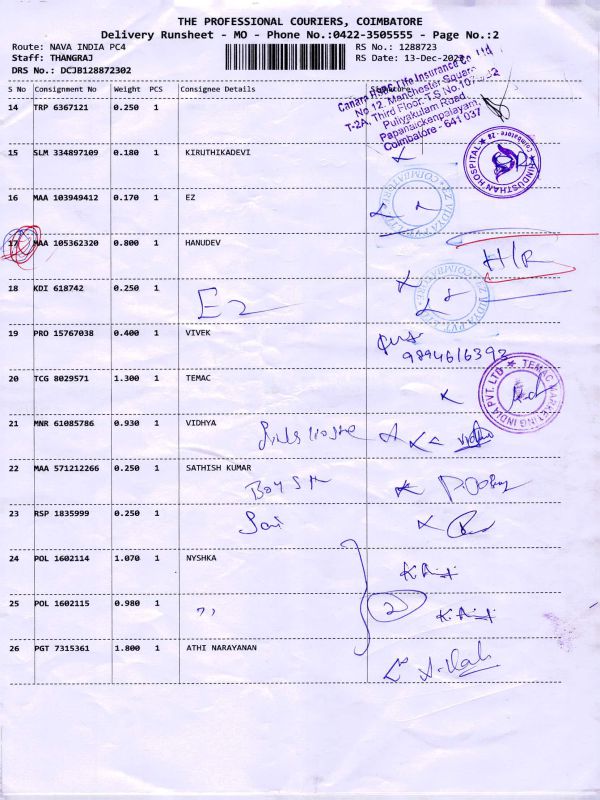 THE PROFESSIONAL COURIERS, COIMBATORE
Delivery Runsheet - MO - Phone No.:0422-3505555 - Page No.:2
Route: NAVA INDIA PC4
RS No.: 1288723
Staff: THANGRAJ
RS Date: 13-Dec-202
DRS No.: DCJB128872302
S No Consignment No Weight PCS Consignee Details
Canara HSBC Life Insurance Co Ltd
No 12, Manchester Square
T-2A, Third Floor, T.S No.
Puliyakulam Road,
Papanaickenpalayam,
Coimbatore - 641 037
14 TRP 6367121 0.250 1
15 SLM 334897109 0.180 1 KIRUTHIKADEVI
HINDUSTHAN HOSPITAL Coimbatore - 28
16 MAA 103949412 0.170 1 EZ
EZ VIDYA COIMBATORE
17 MAA 105362320 0.800 1 HANUDEV
H/R
18 KDI 618742 0.250 1
EZ
EZ VIDYA PVT COIMBATORE
19 PRO 15767038 0.400 1 VIVEK
9894616393
20 TCG 8029571 1.300 1 TEMAC
TEMAC MARKETING INDIA PVT. LTD
21 MNR 61085786 0.930 1 VIDHYA
22 MAA 571212266 0.250 1 SATHISH KUMAR
23 RSP 1835999 0.250 1
24 POL 1602114 1.070 1 NYSHKA
25 POL 1602115 0.980 1 ,,
2
26 PGT 7315361 1.800 1 ATHI NARAYANAN